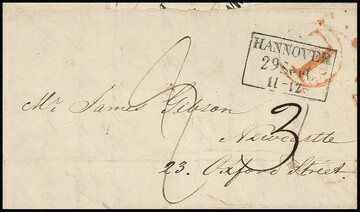 HANNOVER
29 Sept.
11-12
Mr. James Gibson
Newcastle
23. Oxford Street.
3